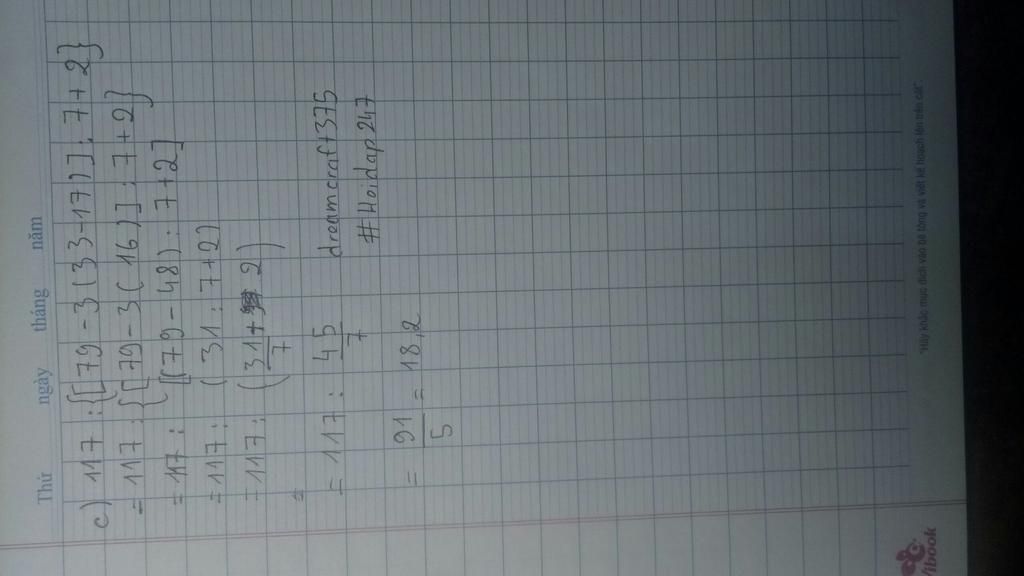 Thứ ngày tháng năm
c) 117 : {[79 - 3(33-17)] : 7 + 2}
= 117 : {[79 - 3(16)] : 7 + 2}
= 117 : [(79 - 48) : 7 + 2]
= 117 : (31 : 7 + 2)
= 117 : (31/7 + 2)
=
= 117 : 45/7
dreamcraft375
= 91/5 = 18,2
#Hoidap247
"Hãy khắc mục đích vào bê tông và viết kế hoạch lên trên cát".
Vibook